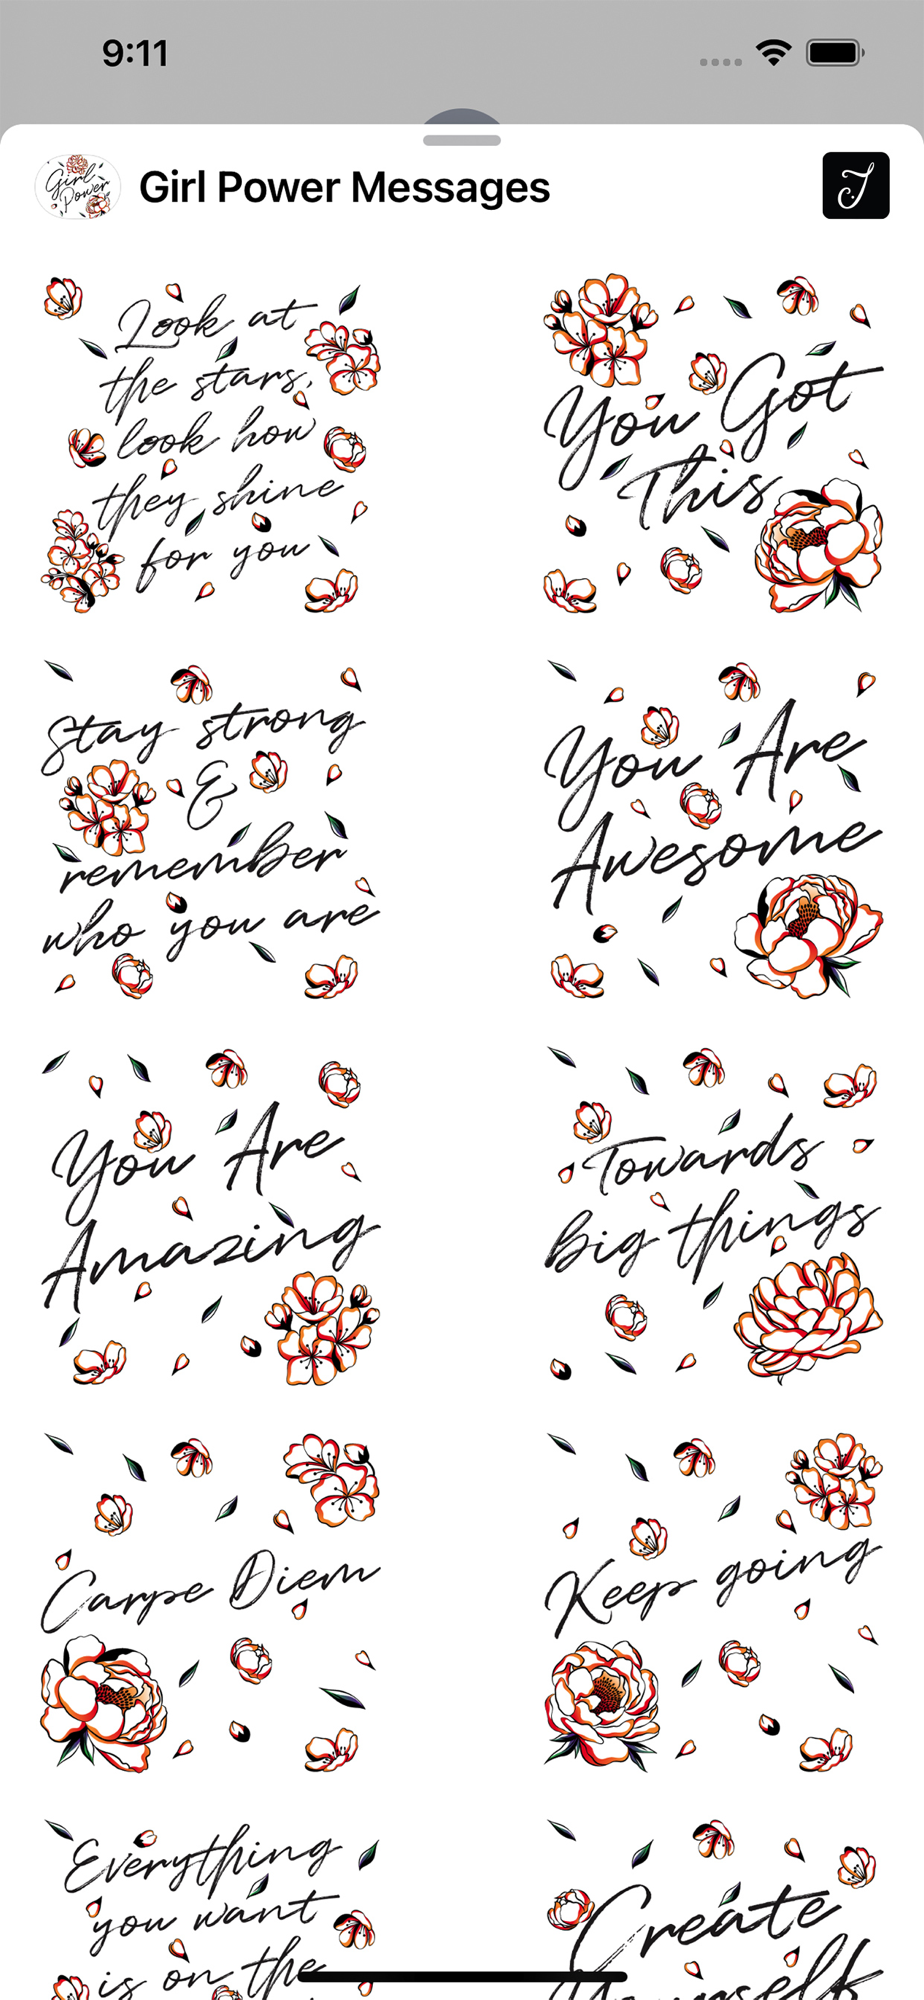 9:11
Girl Power
Girl Power Messages
J
Look at
the stars,
look how
they shine
for you
You Got
This
Stay strong
&
remember
who you are
You Are
Awesome
You Are
Amazing
Towards
big things
Carpe Diem
Keep going
Everything
you want
is on the
Create
Yourself